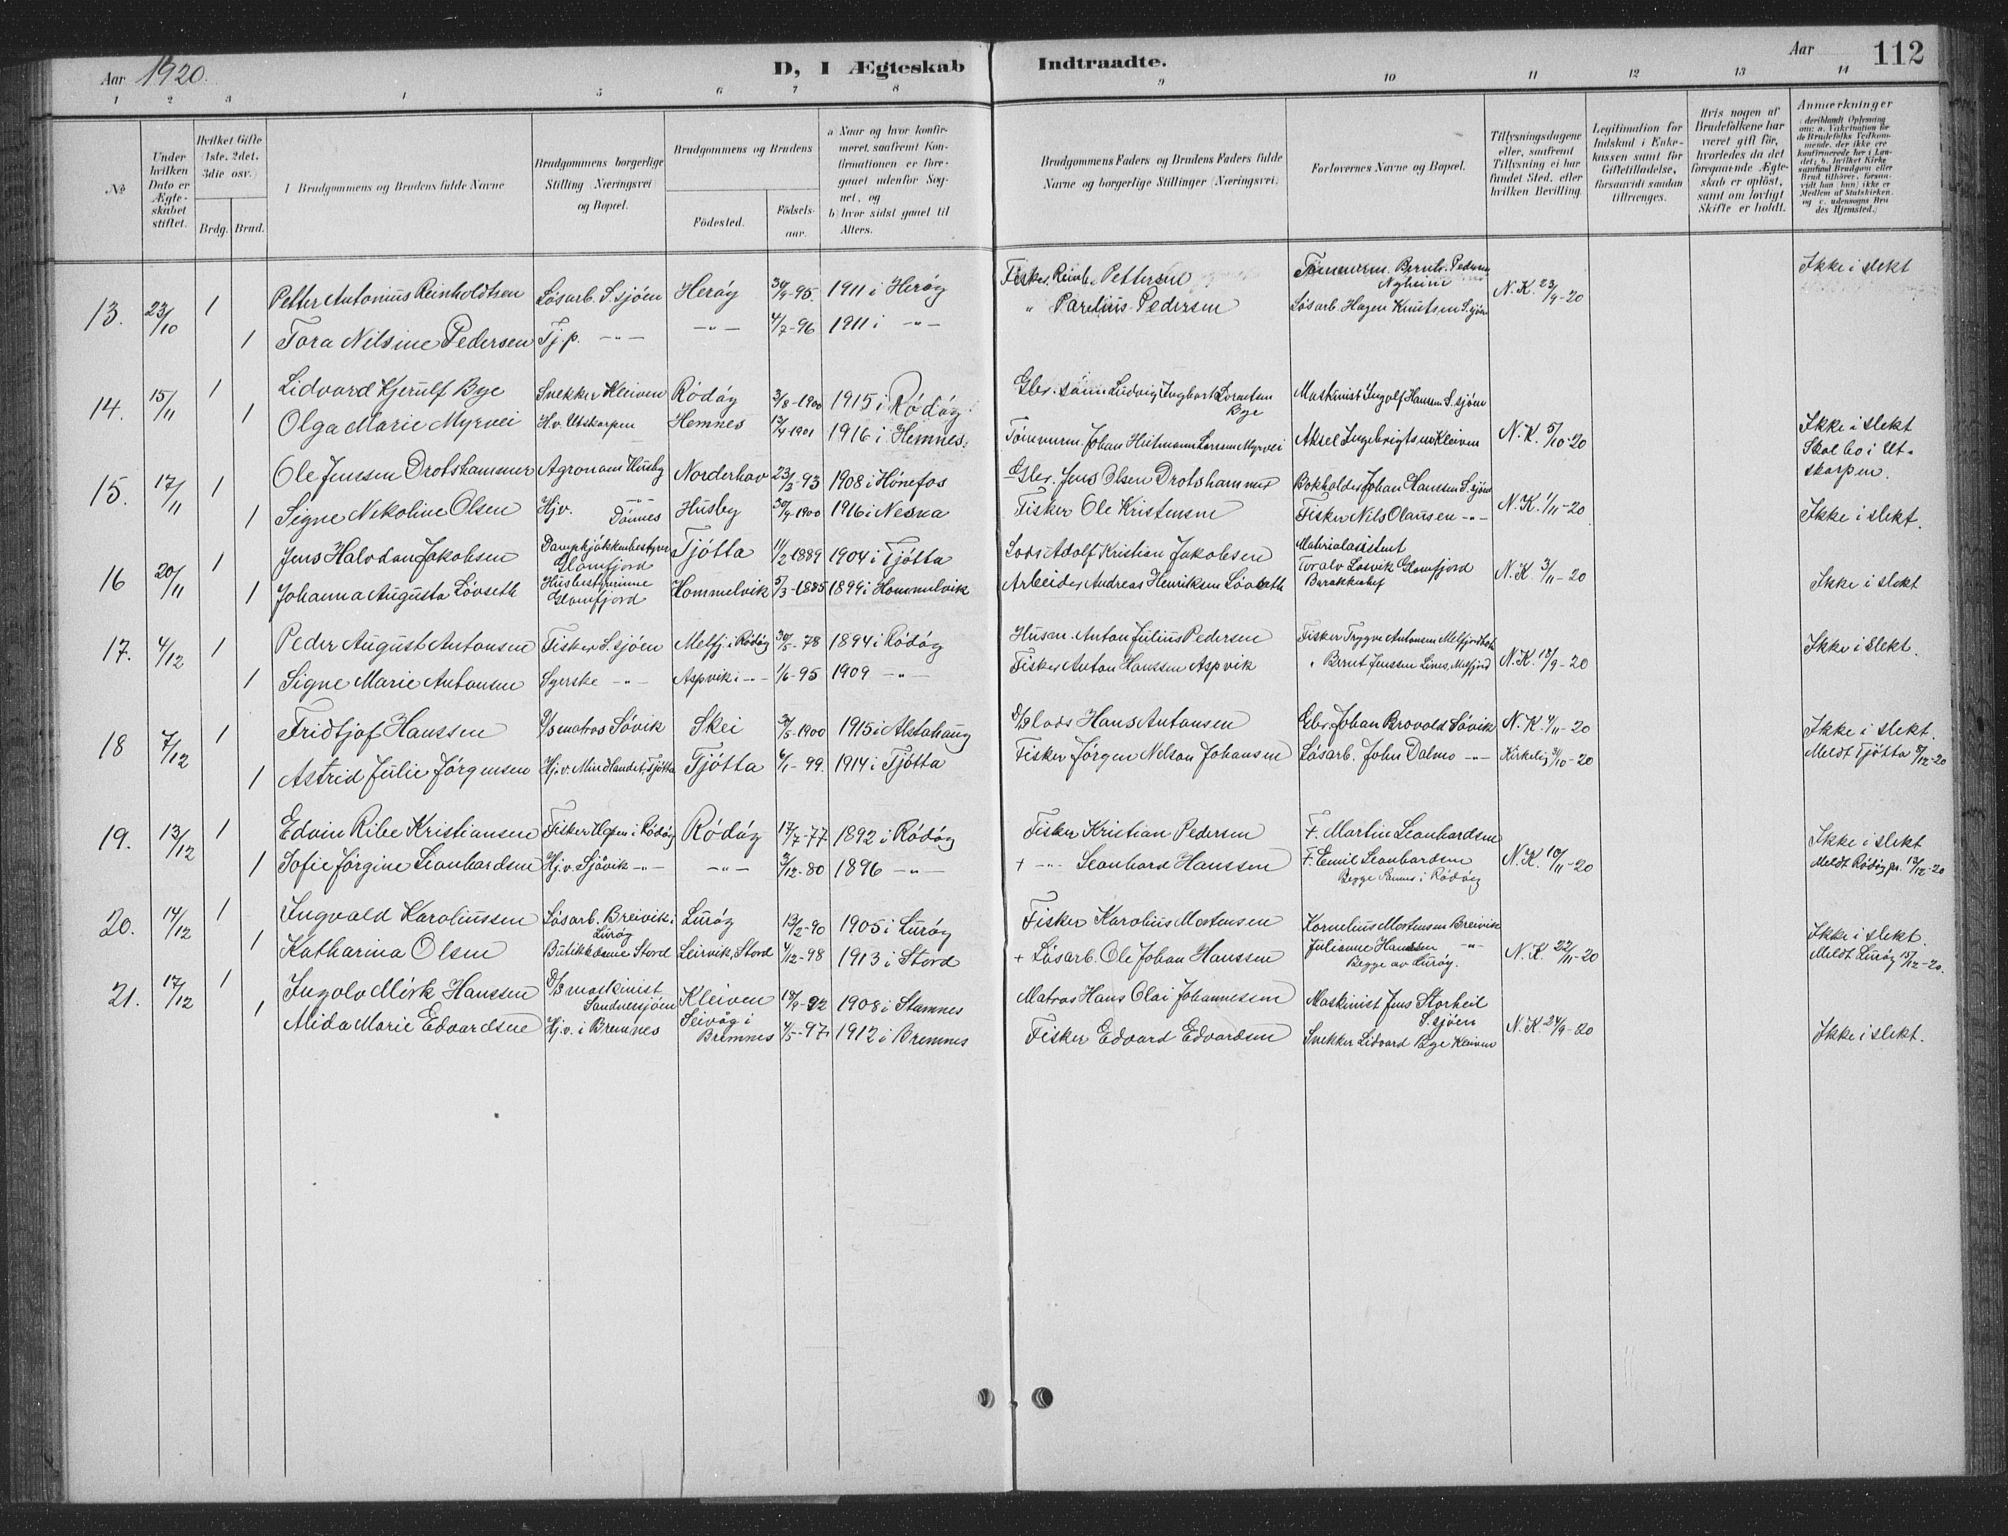 Aar 1920.
D, I Ægteskab Indtraadte.
Aar 112
1 2 3 4 5 6 7 8 9 10 11 12 13 14
No.
Under hvilken Dato er Ægteskabet stiftet.
Hvilket Gifte 1ste, 2det, 3die osv.)
Brdg. Brud.
Brudgommens og Brudens fulde Navne
Brudgommens borgerlige Stilling (Næringsvei) og Bopæl.
Brudgommens og Brudens
Fødested.
Fødselsaar.
a) Naar og hvor konfirmeret, saafremt Konfirmationen er foregaaet udenfor Sognet, og
b) hvor sidst gaaet til Alters.
Brudgommens Faders og Brudens Faders fulde Navne og borgerlige Stillinger (Næringsvei).
Forlovernes Navne og Bopæl.
Tillysningsdagene eller, saafremt Tillysning ei har fundet Sted, efter hvilken Bevilling.
Legitimation for Indskud i Enkekassen samt for Giftetilladelse, forsaavidt saadan tiltrænges.
Hvis nogen af Brudefolkene har været gift før, hvorledes da det foregaaende Ægteskab er opløst, samt om lovligt Skifte er holdt.
Anmærkninger (deriblandt Oplysning om: a. Vakcination for de Brudefolks Vedkommende, der ikke ere konfirmerede her i Landet; b. hvilket Kirkesamfund Brudgom eller Brud tilhører, forsaavidt han (hun) ikke er Medlem af Statskirken, og c. udensogns Brudes Hjemsted.)
13. 23/10 1 Petter Antonius Reinholdtsen Løsarb. S.sjøen Herøy 30/9-95. 1911 i Herøy Fisker Reinh. Pettersen Tømmerm. Bernh. Pedersen Nyheim N.K. 23/9-20 Ikke i slekt
1 Tora Nilsine Pedersen Tj.p. -"- -"- 4/7-96 1911 i -"- " Parelius Pedersen Løsarb. Hagen Knutsen S.sjøen
14. 15/11 1 Lidvard Kjerulf Bye Snekker Kleiven Rødøy 3/8-1900 1915 i Rødøy Gbr.sønn Ludvig Ingbart Lorentsen Bye Maskinist Ingolf Hansen S.sjøen
1 Olga Marie Myrvei H.v. Utskarpen Hemnes 13/4-1901 1916 i Hemnes. Tømmerm. Johan Hutmann Larsen Myrvei Aksel Ingebrigtsen Kleiven N.K. 5/10-20 Ikke i slekt Skal bo i Utskarpen.
15. 17/11 1 Ole Jenssen Drotshammer Agronom Husby Norderhov 23/3-93 1908 i Hønefos Gbr. Jens Olsen Drotshammer Bokholder Johan Hanssen S.sjøen
1 Signe Nikoline Olsen Hjv. Dønnes Husby 30/9-1900 1916 i Nesna Fisker Ole Kristensen Fisker Nils Olaussen -"- N.K. 1/11-20 Ikke i slekt.
16 20/11 1 Jens Halvdan Jakobsen Dampkjøkkenbestyrer Glomfjord Tjøtta 11/2-1889 1904 i Tjøtta Lods Adolf Kristian Jakobsen Materialassistent Toralv Løsvik Glomfjord
1 Johanna Augusta Løvseth Husbestyrinne Glomfjord Hommelvik 5/3-1885 1899 i Hommelvik Arbeider Andreas Henriksen Løvseth N.K. 3/11-20 Ikke i slekt
17. 4/12 1 Peder August Antonsen Fisker S.sjøen Melfj. i Rødøy 30/5-78 1894 i Rødøy Husm. Anton Julius Pedersen Fisker Trygve Antonsen Melfjordbotn Ikke i slekt.
1 Signe Marie Antonsen Syerske -"- Aspvik i -"- 1/6-95 1909 -"- Fisker Anton Hanssen Aspvik " Bernt Jenssen Lines, Melfjord N.K. 13/9-20
18 7/12 1 Fridtjof Hanssen D/S matros Søvik Skei 3/5-1900 1915 i Alstahaug D/S lods Hans Antonsen Gbr. Johan Brovold Søvik N.K. 4/11-20 Ikke i slekt.
1 Astrid Julie Jørgensen Hj.v. Mindlandet, Tjøtta Tjøtta 6/1-99. 1914 i Tjøtta Fisker Jørgen Nelson Johansen Løsarb. John Dalmo -"- Kirkelig 31/10-20 Meldt Tjøtta 9/12-20
19. 13/12 1 Edvin Ribe Kristiansen Fisker i Rødøy Rødøy 17/7-77 1892 i Rødøy Fisker Kristian Pedersen F. Martin Leonhardsen Ikke i slekt
1 Sofie Jørgine Leonhardsen Hj.v. Sjøvik -"- -"- 3/12-80 1896 -"- + -"- Leonhard Hanssen F. Emil Leonhardsen Begge Sannes i Rødøy N.K. 10/11-20 Meldt Rødøy pr. 13/12-20
20. 14/12 1 Ingvald Karoliussen Løsarb. Breivik i Lurøy Lurøy 13/2-90 1905 i Lurøy Fisker Karolius Mortensen Kornelius Mortensen Breivik Ikke i slekt.
1 Katharina Olsen Butikkdame Stord Leirvik, Stord 4/12-98 1913 i Stord + Løsarb. Ole Johan Hanssen Julianne Hanssen -"- Begge av Lurøy. N.K. 22/11-20 Meldt Lurøy 15/12-20.
21. 17/12 1 Ingolv Mirk Hanssen D/S maskinist Sandnessjøen Kleiven 19/9-92 1908 i Stamnes Matros Hans Olai Johannesen Maskinist Jens Storheil S.sjøen
1 Alida Marie Edvardsen Hj.v. i Bremnes Seivåg i Bremnes 4/5-97. 1912 i Bremnes Fisker Edvard Edvardsen Snekker Lidvard Bye Kleiven N.K. 24/9-20 Ikke i slekt.